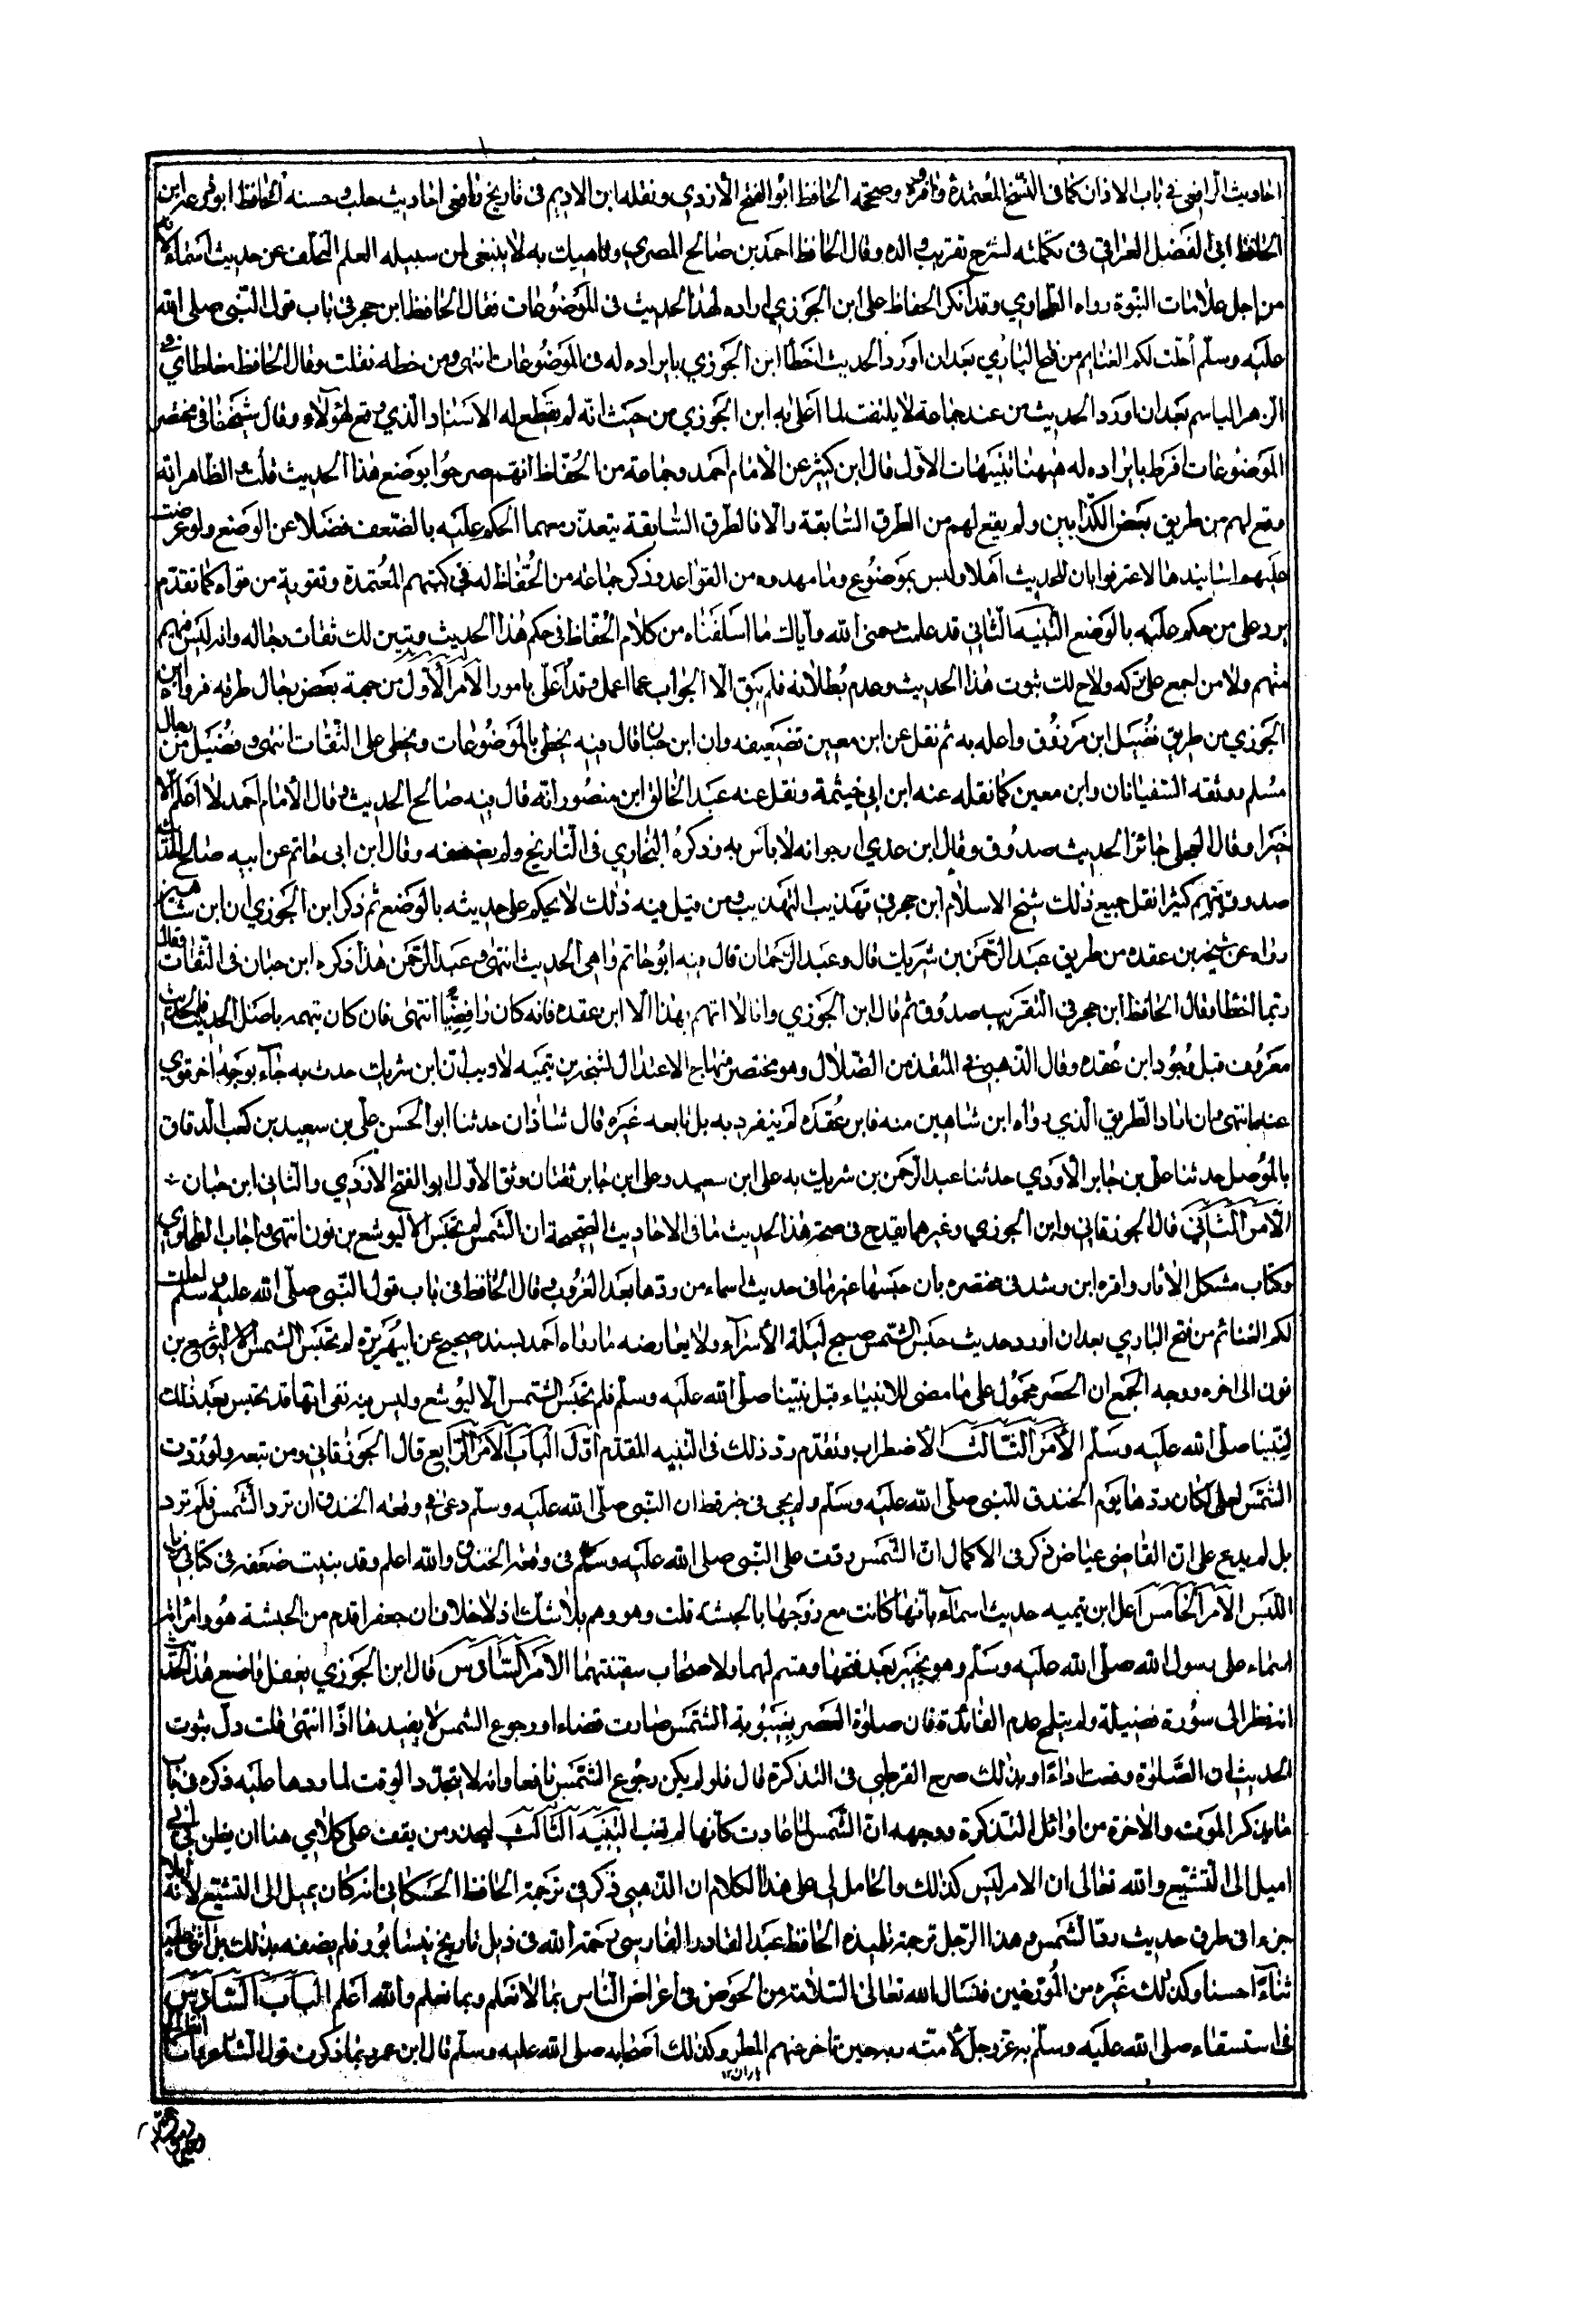 احاديث الراضى فى باب الاذان كما فى النسخ المعتمدة واقره وصححه الحافظ ابو الفتح الازدي ونقله ابن الاديم فى تاريخ حلب وحسنه الحافظ ابو زرعه ابن
الحافظ ابى الفضل العراقى فى تكملته لشرح تقريب والده وقال الحافظ احمد بن صالح المصري وناهيك به لا ينبغى لمن سبيله العلم التخلف عن حديث اسماء لانه
من اجل علامات النبوة رواه الطحاوي وقد انكر الحفاظ على ابن الجوزي ايراده لهذا الحديث فى الموضوعات فقال الحافظ ابن حجر فى باب قول النبى صلى الله
عليه وسلم احلت لكم الغنايم من فتح الباري بعد ان اورد الحديث اخطا ابن الجوزي بايراده له فى الموضوعات انتهى ومن خطه نقلت وقال الحافظ مغلطاي فى
الزهر الباسم بعد ان اورد الحديث من عند جماعة لا يلتفت لما اعلى به ابن الجوزي من حيث انه لم يقطع له الاسناد الذي وقع لهؤلاء وقال شيخنا فى مختصر
الموضوعات افرط بايراده له هيهنا تنبيهات الاول قال ابن كثير عن الامام احمد وجماعة من الحفاظ انهم صرحوا بوضع هذا الحديث قلت الظاهر انه
وقع لهم من طريق بعض الكذابين ولم يقع لهم من الطرق السابقة والا فالطرق السابقة يتعذر معها الحكم عليه بالضعف فضلا عن الوضع ولو عرضت
عليهم اسانيدها لاعترفوا بان للحديث اصلا وليس بموضوع وما مهدوه من القواعد وذكر جماعة من الحفاظ له فى كتبهم المعتمدة وتقوية من قواه كما تقدم
يرد على من حكم عليه بالوضع التنبيه الثانى قد علمت رحمنى الله واياك ما اسلفناه من كلام الحفاظ فى حكم هذا الحديث وتبين لك ثقات رجاله وانه ليس فيهم
متهم ولا من اجمع على تركه ولاح لك ثبوت هذا الحديث وعدم بطلانه فلم يبق الا الجواب عما اعل وقد اعل بامور الامر الاول من جهة بعض رجال طرقه فرواه ابن
الجوزي من طريق فضيل ابن مرزوق واعله به ثم نقل عن ابن معين تضعيفه وان ابن حبان قال فيه يخطى بالموضوعات ويخطى على الثقات انتهى وفضيل من رجال
مسلم ووثقه السفيانان وابن معين كما نقله عنه ابن ابى خيثمة ونقل عنه عبد الخالق ابن منصور انه قال فيه صالح الحديث وقال الامام احمد لا اعلم الا
خيرا وقال العجلى جائز الحديث صدوق وقال ابن عدي ارجو انه لا باس به وذكره البخاري فى التاريخ ولم يضعفه وقال ابن ابى حاتم عن ابيه صالح الحديث
صدوق يهم كثيرا نقل جميع ذلك شيخ الاسلام ابن حجر فى تهذيب التهذيب ومن قيل فيه ذلك لا يحكم على حديثه بالوضع ثم ذكر ابن الجوزي ان ابن شاهين
رواه عن شيخه بن عقده من طريق عبد الرحمن بن شريك قال وعبد الرحمان قال فيه ابو حاتم واهى الحديث انتهى وعبد الرحمن هذا ذكره ابن حبان فى الثقات وقال
ربما اخطا وقال الحافظ ابن حجر فى التقريب صدوق ثم قال ابن الجوزي وانا لا اتهم بهذا الا ابن عقده فانه كان رافضيا انتهى فان كان يتهمه باصل الحديث فالحديث
معروف قبل وجود ابن عقده وقال الذهبى فى المنقذ من الضلال وهو مختصر منهاج الاعتدال لشيخه بن تيميه لا ريب ان ابن شريك حدث به جاء بوجه اخر قوي
عنهما انتهى وان اراد الطريق الذي رواه ابن شاهين منه فابن عقده لم ينفرد به بل تابعه غيره قال شاذان حدثنا ابو الحسن على بن سعيد بن كعب الدقاق
بالموصل حدثنا على بن جابر الاودي حدثنا عبد الرحمن بن شريك به على ابن سعيد وعلى ابن جابر ثقتان وثق الاول ابو الفتح الازدي والثانى ابن حبان
الامر الثانى قال الجوزقانى وابن الجوزي وغيرهما يقدح فى صحة هذا الحديث ما فى الاحاديث الصحيحة ان الشمس لم تحتبس الا ليوشع بن نون انتهى واجاب الطحاوي
فى كتاب مشكل الاثار واقره ابن رشد فى مختصره بان حبسها غير ما فى حديث اسماء من ردها بعد الغروب وقال الحافظ فى باب قول النبى صلى الله عليه وسلم احلت
لكم الغنائم من فتح الباري بعد ان اورد حديث حبس الشمس صبح ليلة الاسراء ولا يعارضه ما رواه احمد بسند صحيح عن ابيهريرة لم تحتبس الشمس الا ليوشع بن
نون الى اخره ووجه الجمع ان الحصر محمول على ما مضى للانبياء قبل نبينا صلى الله عليه وسلم فلم تحتبس الشمس الا ليوشع وليس فيه نفى انها قد تحتبس بعد ذلك
لنبينا صلى الله عليه وسلم الامر الثالث الاضطراب وتقدم رد ذلك فى التنبيه المقدم اول الباب الامر الرابع قال الجوزقانى ومن تبعه ولو ردت
الشمس لعلى لكان ردها يوم الخندق للنبى صلى الله عليه وسلم ولم يجى فى خبر قط ان النبى صلى الله عليه وسلم دعى فى وقعة الخندق ان ترد الشمس فلم ترد
بل لم يدع على ان القاضى عياض ذكر فى الاكمال ان الشمس وقفت على النبى صلى الله عليه وسلم فى وقعة الخندق والله اعلم وقد بنيت ضعفه فى كتابى مزيل
اللبس الامر الخامس اعل ابن تيميه حديث اسماء بانها كانت مع زوجها بالحبشة قلت وهو وهم بلا شك اذ لا خلاف ان جعفر اقدم من الحبشة هو وامراته
اسماء على رسول الله صلى الله عليه وسلم وهو بخيبر بعد فتحها وقسم لهما ولاصحاب سفينتهما الامر السادس قال ابن الجوزي بغفل واضع هذا الحديث
انه نظر الى سورة فضيلة ولم يتلمح عدم الفائدة فان صلوة العصر بغيبوبة الشمس صارت قضاء ورجوع الشمس لا يفيدها اذا انتهى قلت دل ثبوت
الحديث ان الصلوة وقعت اداء وبذلك صرح القرطبى فى التذكرة قال فلو لم يكن رجوع الشمس نافعا وانه لا يتجدد الوقت لما ردها عليه ذكره فى باب
ما يذكر الموت والاخرة من اوائل التذكرة ووجهه ان الشمس لما عادت كانها لم تغب التنبيه الثالث ليحذر من يقف على كلامى هنا ان يظن بى انى
اميل الى التشيع والله تعالى ان الامر ليس كذلك والحامل لى على هذا الكلام ان الذهبى ذكر فى ترجمة الحافظ الحسكانى انه كان يميل الى التشيع لانه املا
جزءا فى طرق حديث رد الشمس وهذا الرجل ترجمه تلميذه الحافظ عبد القادر الفارسى رحمه الله فى ذيل تاريخ نيسابور فلم يصفه بذلك بل اثنى عليه
ثناء حسنا وكذلك غيره من المورخين فنسال الله تعالى السلامة من الخوض فى اعراض الناس بما لا نعلم وبما نعلم والله اعلم الباب السادس
فى استسقاء صلى الله عليه وسلم ربه عز وجل لامته حين تاخر عنهم المطر وكذلك اصحابه صلى الله عليه وسلم قال ابن عمر ربما ذكرت قول الشاعر وانا انظر الى
باران ١٢